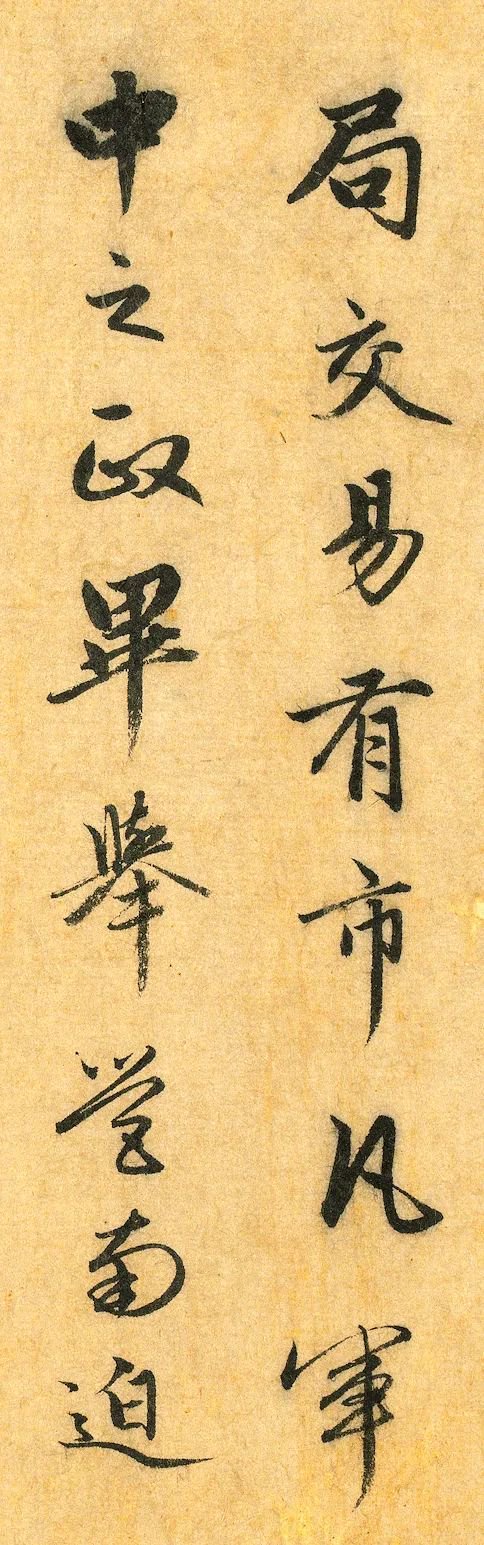 局交易有市凡軍
中之政畢舉營南迫